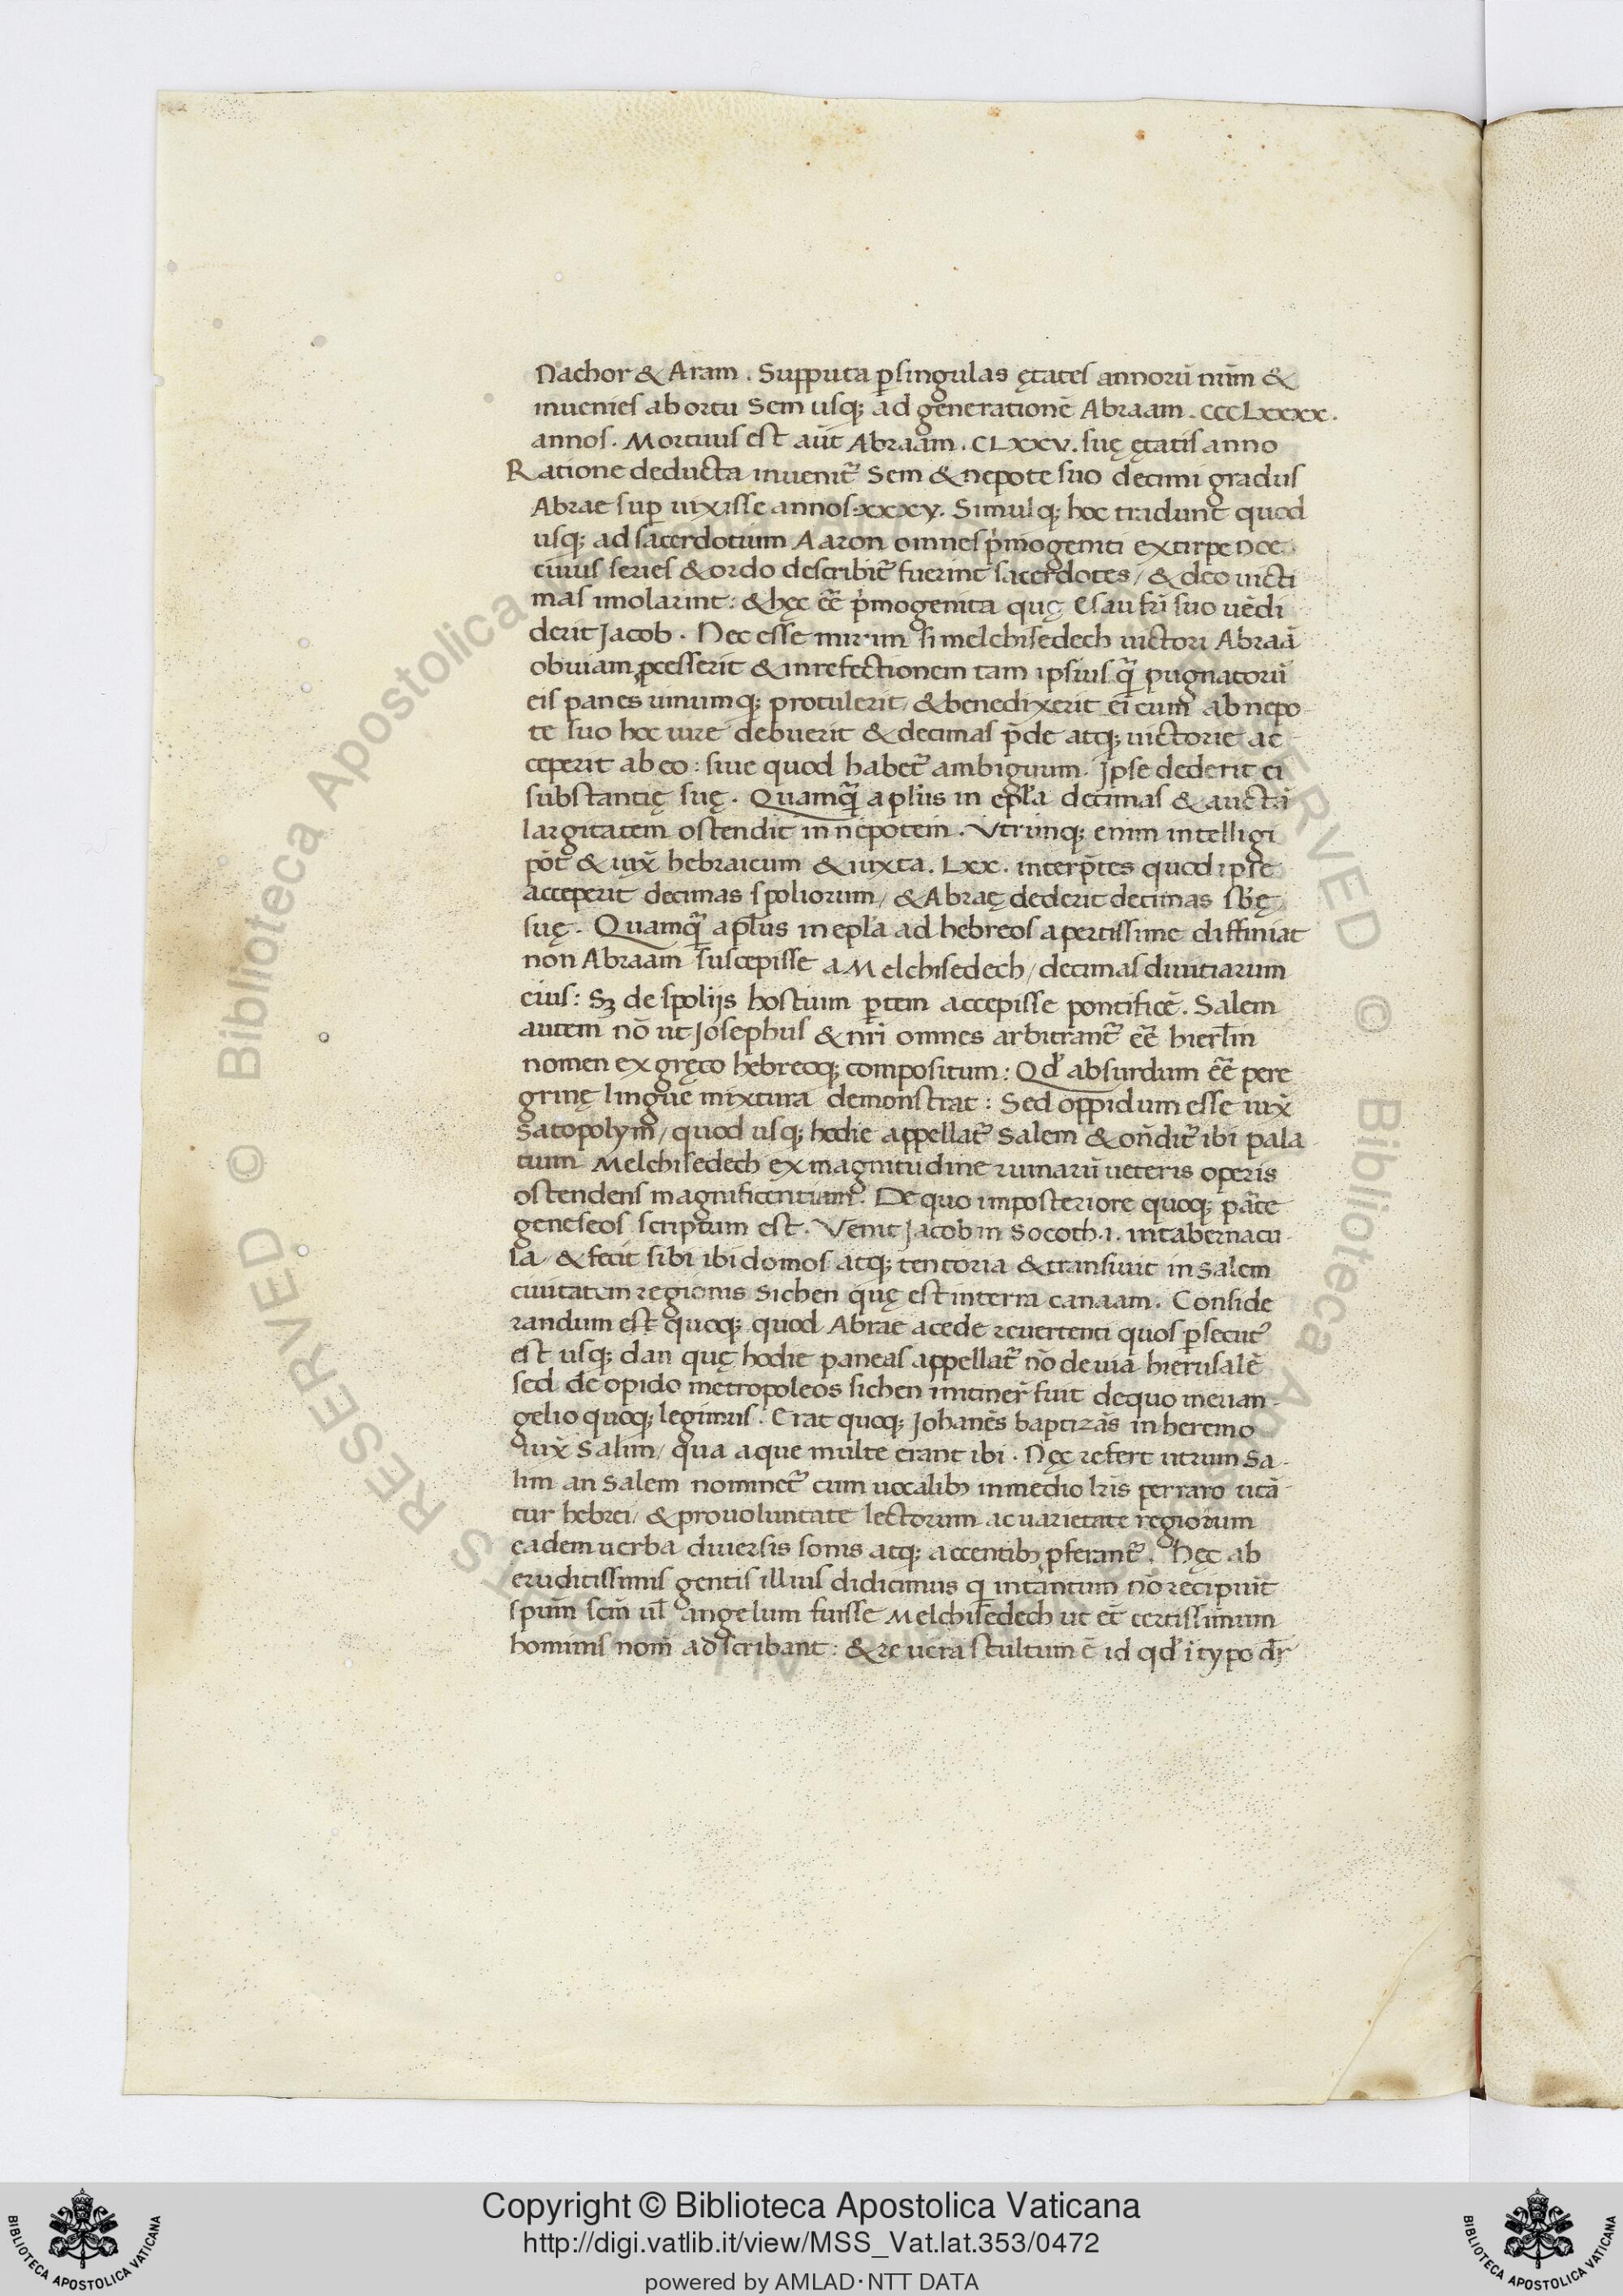 Nachor & Aram. Supputa p̱singulas ętates annorū nūm &
inuenies ab ortu Sem usq; ad generationē Abraam. CCCLxxxx.
annos. Mortuus est aūt Abraam. CLxxv. suę ętatis anno
Ratione deducta inuenit᷑ Sem & nepote suo decimi gradus
Abrae sup̱ uixisse annos xxxv. Simulq; hoc tradunt quod
usq; ad sacerdotium Aaron omnes p̍mogeniti extirpe noe
cuius series & ordo describit᷑ fuerint sacerdotes / & deo uicti
mas imolarint: & hęc eē̄ p̍mogenita quę Esau frī suo uēdi
derit Jacob. Nec esse mirum si melchisedech uictori Abraā
obuiam ꝓcesserit & inrefectionem tam ipsius q̄ pugnatorū
eis panes uinumq; protulerit, & benedixerit ei cum ab nepo
te suo hoc iure debuerit & decimas p̄de atq; uictorie ac
ceperit ab eo: siue quod habet᷑ ambiguum. Ipse dederit ei
substantię suę. Quamq̄ ap̄lus in ep̄la decimas & auctā
largitatem ostendit in nepotem. Vtrunq; enim intelligi
pōt & iux̄ hebraicum & iuxta. Lxx. interp̄tes quod ipse
acceperit decimas spoliorum / & Abraę dederit decimas sb̄ę
suę. Quamq̄ ap̄lus in ep̄la ad hebreos apertissime diffiniat
non Abraam suscepisse a Melchisedech / decimas diuitiarum
eius: Sꝫ de spolijs hostium p̱tem accepisse pontificē. Salem
autem nō ut Josephus & nr̄i omnes arbitrant᷑ eē̄ hierl̄m
nomen ex gręco hebreoq; compositum: Qd̕ absurdum eē̄ pere
grinę lingue mixtura demonstrat: Sed oppidum esse iux̄
Satopolym̄ / quod usq; hodie appellat᷑ Salem & on̄dit᷑ ibi pala
tium Melchisedech ex magnitudine ruinarū ueteris operis
ostendens magnificentiam. De quo imposteriore quoq; pāte
geneseos scriptum est. Venit Jacob in Socoth .i. intabernacu
la / & fecit sibi ibi domos atq; tentoria & transiuit in Salem
ciuitatem regionis Sichen quę est interra canaam. Conside
randum est quoq; quod Abrae acede reuertenti quos p̱secut᷑
est usq; dan quę hodie paneas appellat᷑ nō de uia hierusalē
sed de opido metropoleos sichen initiner̄ fuit dequo ineuan
gelio quoq; legimus. Erat quoq; Johanēs baptizās in heremo
iux̄ Salim / qua aque multe erant ibi. Nęc refert utrum Sa
lim an Salem nominet᷑ cum uocalibꝫ inmedio lr̄is perraro utā
tur hebrei / & pro uoluntate lectorum ac uarietate regiorum
eadem uerba diuersis sonis atq; accentibꝫ ꝓferant᷑. Hęc ab
eruditissimis gentis illius didicimus q intantum nō recipiūt
spūm scm̄ ul̄ angelum fuisse Melchisedech ut et̄ certissimum
hominis nom̄ adscribant: & re uera stultum ē id qd̕ ī typo dr̄
Copyright © Biblioteca Apostolica Vaticana
http://digi.vatlib.it/view/MSS_Vat.lat.353/0472
powered by AMLAD·NTT DATA